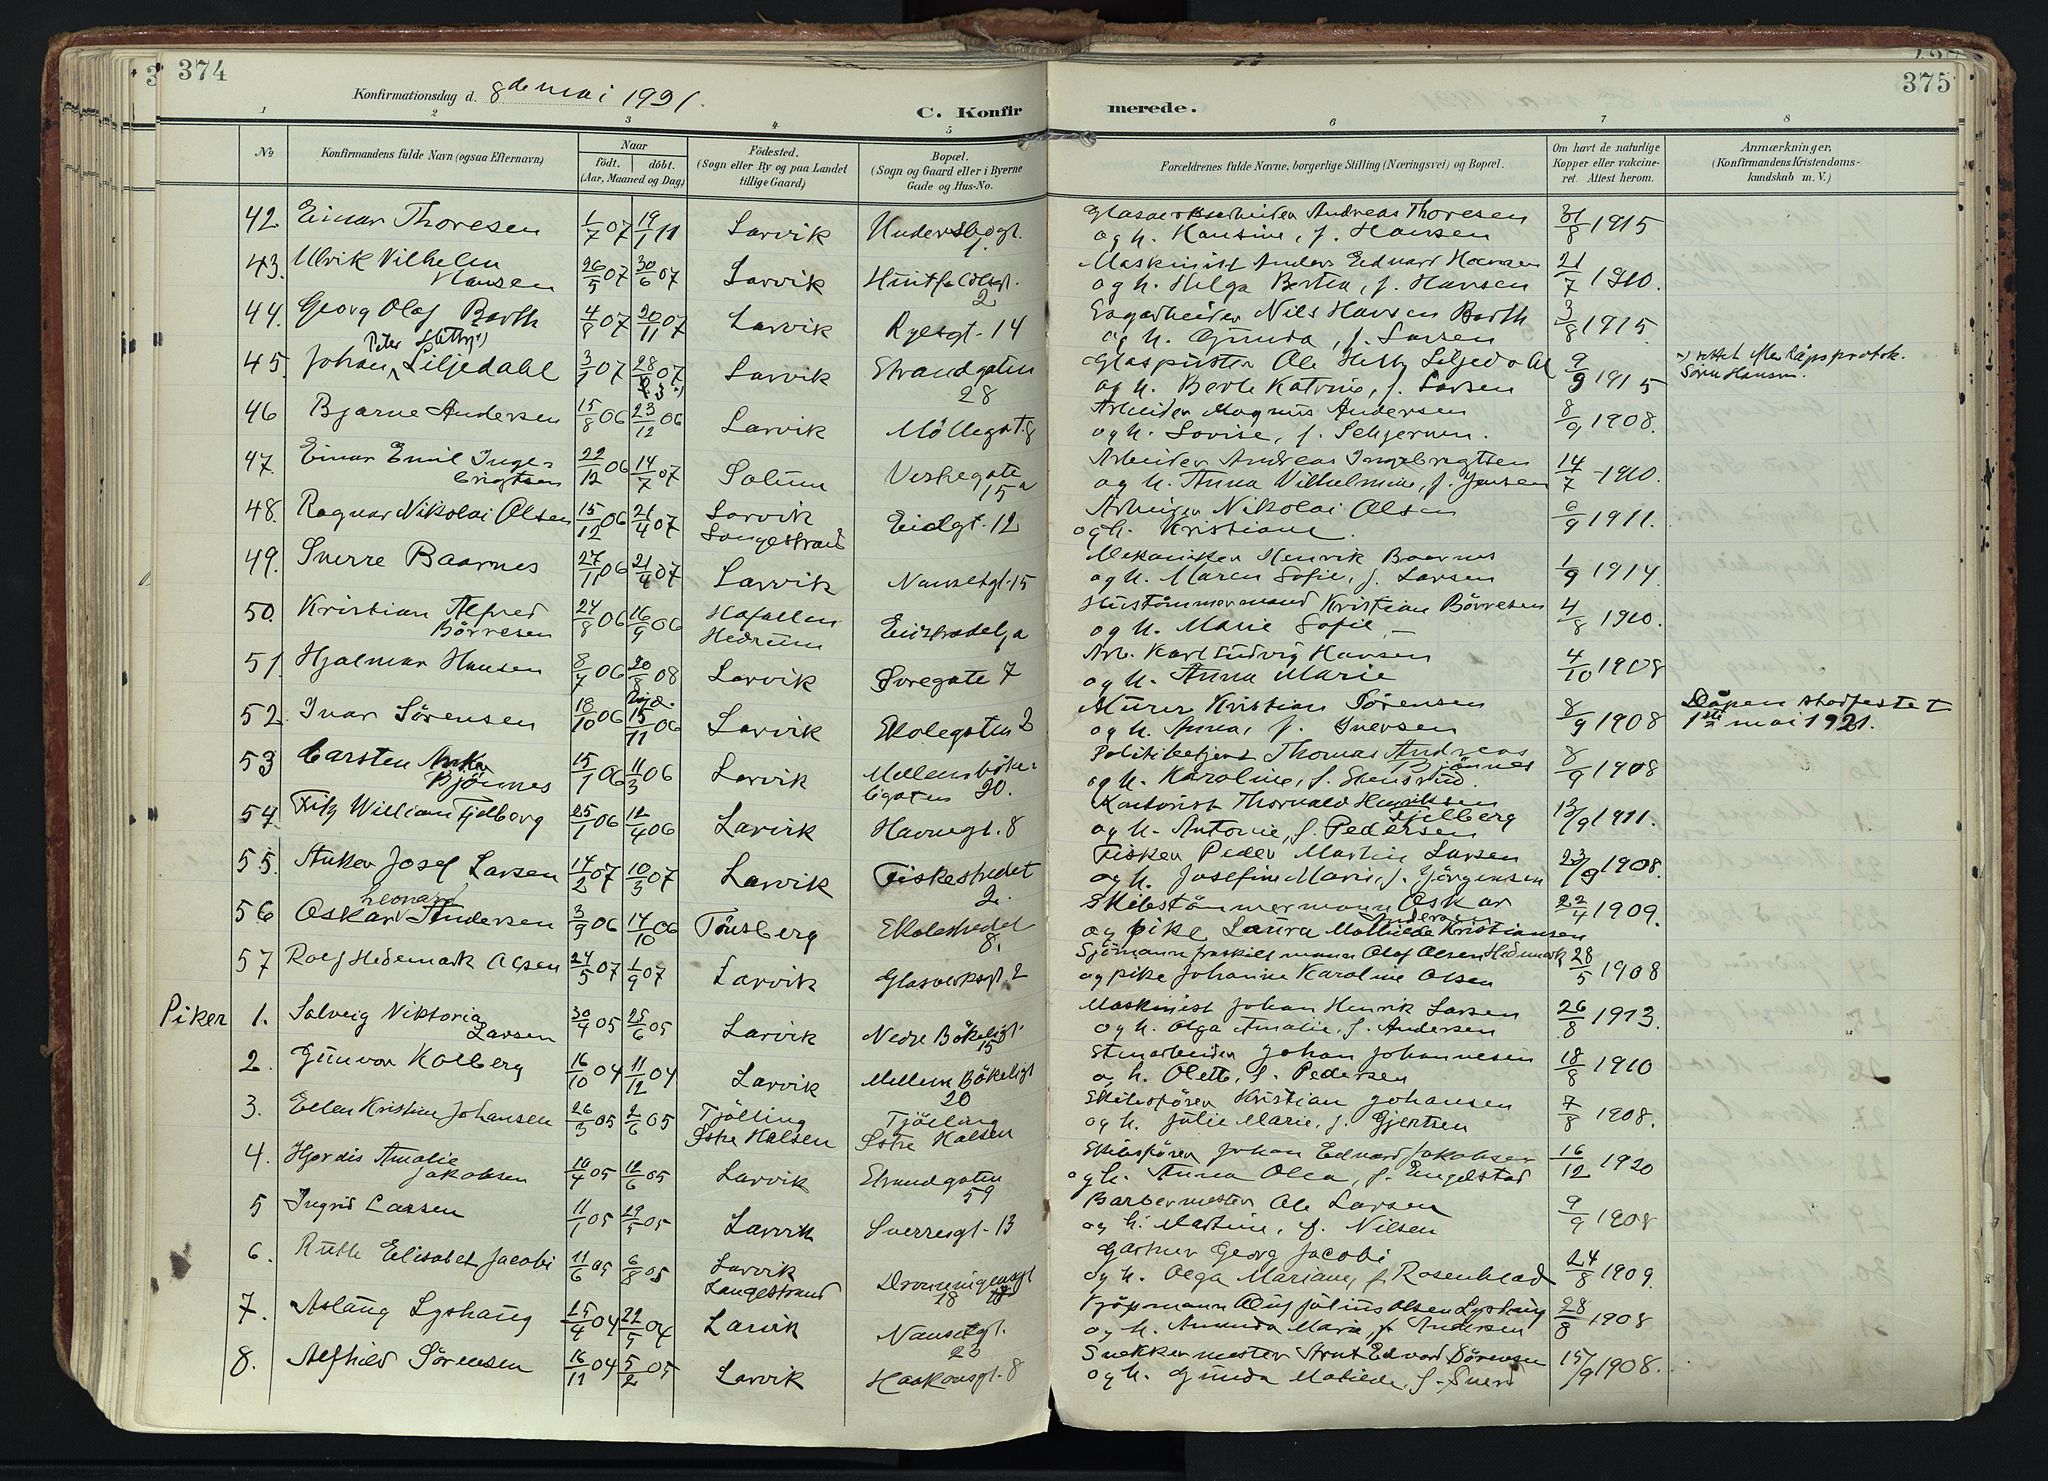 374
375
Konfirmationsdag d. 8de mai 1921.
C. Konfirmerede.
1 2 3 4 5 6 7 8
No
Konfirmandens fulde Navn (ogsaa Efternavn)
Naar
født. døbt.
(Aar, Maaned og Dag)
Fødested.
(Sogn eller By og paa Landet
tillige Gaard)
Bopæl.
(Sogn og Gaard eller i Byerne
Gade og Hus-No.
Forældrenes fulde Navne, borgerlige Stilling (Næringsvei) og Bopæl.
Om havt de naturlige
Kopper eller vakcine-
ret. Attest herom.
Anmærkninger.
(Konfirmandens Kristendoms-
kundskab m. V.)
42. Einar Thoresen 1/7 07 19/1 11 Larvik
Glasverksarbeider Andreas Thoresen
og h. Hansine, f. Hansen 31/8 1915
43. Ulrik Vilhelm
Hansen 26/5 07 30/6 07 Larvik Huitfeldtsgt. 2
Maskinist Anders Edvard Hansen
og h. Helga Bertea, f. Hansen 21/7 1910.
44. Georg Olaf Barth 4/8 07 20/11 07 Larvik Ryesgt. 14
Nils Hansen Barth
og h. Gunda, f. Larsen 3/8 1915.
45. Johan Peter Liljedahl 3/1 07 28/ 07 Larvik Strandgaten
28
Glaspuster Ole Liljedahl
og h. Berte Katrine, f. Larsen 9/9 1915
rettet efter dåpsprotok.
Sørin Hansen.
46 Bjarne Andersen 15/8 06 23/12 06 Larvik Möllegat. 8
Arbeider Magnus Andersen
og h. Lovise, f. 8/9 1908.
47. Einar Emil Inge-
brigtsen 22/12 06 14/7 07 Solum Verkegate
15 a
Arbeider Andreas Ingebrigtsen
og h. Anna Vilhelmine, f. Jensen 14/7 1910.
48. Ragnar Nikolai Olsen 15/12 06 21/4 07 Larvik
Langestrand Eidgt. 12
Arbeider Nikolai Olsen
og h. Kristiane. 6/9 1911.
49. Sverre Baarnes 27/11 06 21/4 07 Larvik Nansetgt. 15
Mekaniker Henrik Baarnes
og h. Maren Sofie, f. Larsen 1/9 1914.
50. Kristian Alfred
Börresen 24/8 06 16/9 06
Hedrum
Hustømmermand Kristian Børresen
og h. Marie Sofie 4/8 1910.
51. Hjalmar Hansen 8/7 06 20/8 08 Larvik Øvregate 7
Arb. Karl Ludvig Hansen
og h. Anna Marie 4/10 1908
52. Ivar Sørensen 18/10 06 15/11 06 Larvik Skolegaten 2
Murer Kristian Sørensen
og h. Anna, f. Iversen 8/9 1908
Dåpen stadfestet
1ste mai 1921.
53 Carsten Anker
Bjønnes 15/1 06 11/3 06 Larvik Mellembøke-
ligaten 20.
Politibetjent Thomas Andreas
Bjønnes
og h. Karoline, f. Stensrud. 8/9 1908
54 Fritz William Fjelberg 25/1 06 12/4 06 Larvik Havnegt. 8
Kontorist Thorvald Henriksen
Fjelberg
og h. Antonie, f. Pedersen 13/9 1911.
55. Anker Josef Larsen 14/2 07 10/3 07 Larvik Fiskestredet
2.
Fisker Peder Martin Larsen
og h. Josefine Marie, f. Jørgensen 23/9 1908.
56 Oskar Leonard Andersen 3/9 06 14/10 06 Tönsberg Skolestredet
8.
Skibstømmermann Oskar
Andersen
og pike Laura Mathilde Kristiansen 22/4 1909.
57 Rolf Hedemark Olsen 24/5 07 1/9 07 Larvik Glasverksgt. 2
Sjömann fraskilt mann Olaf Olsen Hedemark
og pike Johanne Karoline Olsen 28/5 1908
Piker 1. Solveig Viktoria
Larsen 30/4 05 25/6 05 Larvik Nedre Bökeligt.
15
Maskinist Johan Henrik Larsen
og h. Olga Amalie, f. Andersen 26/8 1913.
2. Gunvor Kolberg 16/10 04 11/12 04 Larvik Mellem Bökeligt
20
Stenarbeider Johan Johannesen
og h. Olette, f. Pedersen 18/8 1910
3. Ellen Kristine Johansen 26/3 05 2/6 05 Tjölling
Østre Halsen Tjölling
Østre Halsen
Skibsfører Kristian Johansen
og h. Julie Marie, f. Gjertsen 7/8 1908.
4. Hjørdis Amalie
Jakobsen 10/4 05 12/6 05 Larvik Strandgaten
59
Skibsfører Johan Edvard Jakobsen
og h. Anna Olea, f. Engelstad 16/12 1920
5 Ingrid Larsen 11/1 05 29/5 05 Larvik Sverresgt. 13
Barbermester Ole Larsen
og h. Martine, f. Nilsen 9/9 1908
6. Ruth Elisabet Jacobi 11/6 05 6/8 05 Larvik
Langestrand Dronningensgt
18
Gartner Georg Jacobi
og h. Olga Mariane, f. Rosenblad 24/8 1909.
7. Aslaug Lyshaug 25/4 04 22/5 04 Larvik Nansetgt.
23
Kjøpmann Oluf Julius Olsen Lyshaug
og h. Amanda Marie, f. Andersen 28/8 1908
8. Alfhild Sörensen 16/11 04 5/2 05 Larvik Haakonsgt. 8
Snekkermester Arnt Edvard Sörensen
og h. Gunda Matilde, f. 15/9 1908.